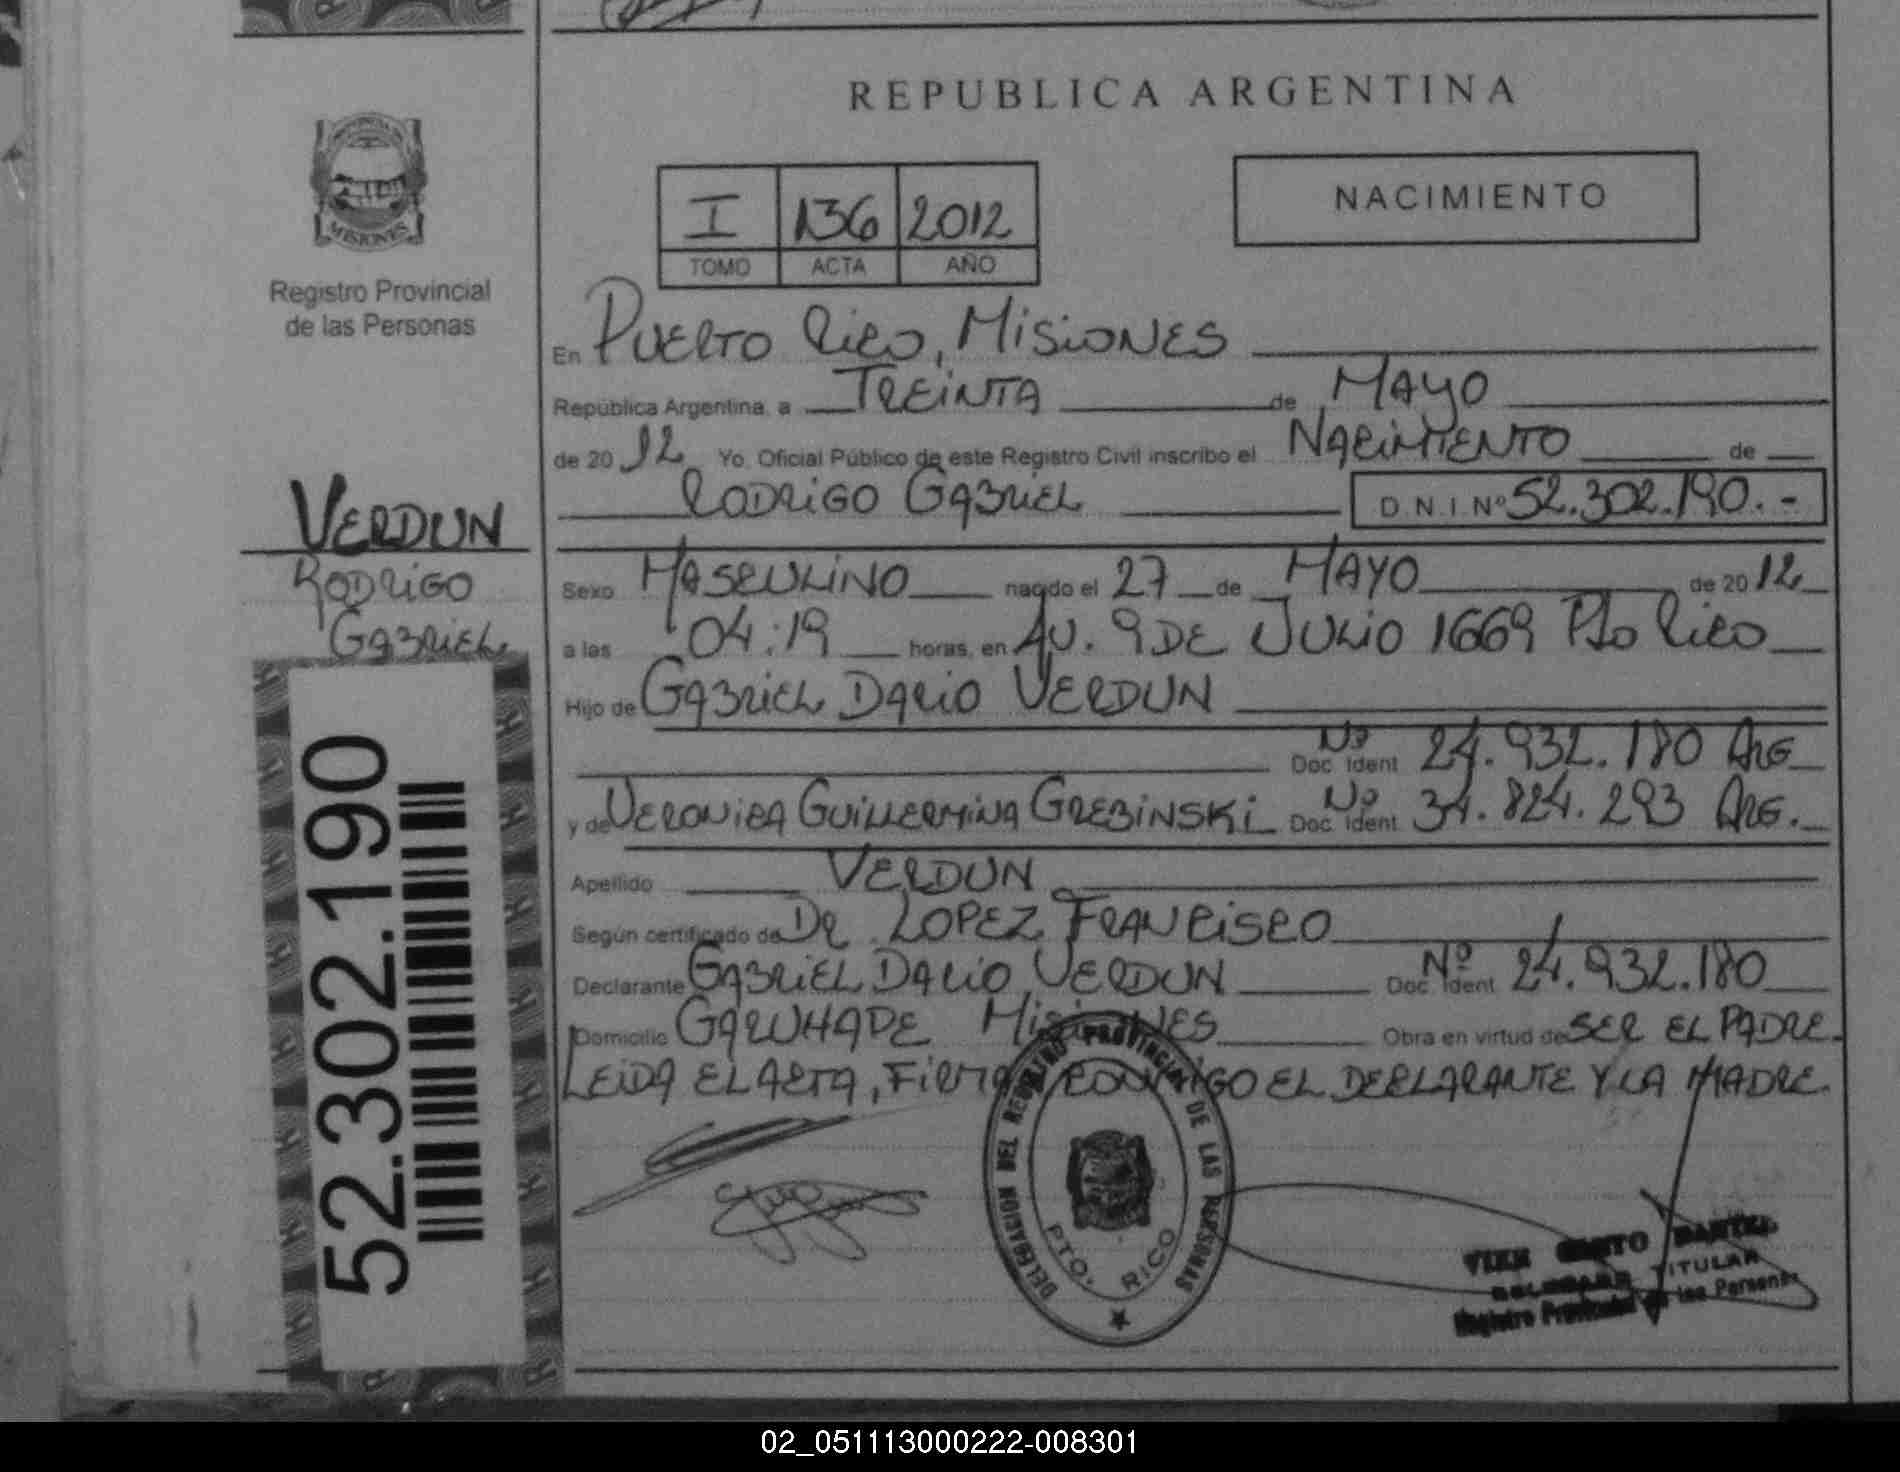 REPUBLICA ARGENTINA
PROVINCIA DE
MISIONES
Registro Provincial
de las Personas
I 136 2012
TOMO ACTA AÑO
NACIMIENTO
En PUERTO RICO, MISIONES
República Argentina, a TREINTA de MAYO
de 2012 Yo, Oficial Público de este Registro Civil inscribo el NACIMIENTO de
RODRIGO GABRIEL D.N.I. Nº 52.302.190.-
VERDUN
RODRIGO
GABRIEL
52.302.190
Sexo MASCULINO nacido el 27 de MAYO de 2012
a las 04:19 horas, en AV. 9 DE JULIO 1669 Pto RICO
Hijo de GABRIEL DARIO VERDUN
Doc. Ident. Nº 24.932.180 ARG.
y de VERONICA GUILLERMINA GREBINSKI Doc. Ident. Nº 34.824.293 ARG.
Apellido VERDUN
Según certificado de DR. LOPEZ FRANCISCO
Declarante GABRIEL DARIO VERDUN Doc. Ident. Nº 24.932.180
Domicilio GARUHAPE MISIONES Obra en virtud de SER EL PADRE.
LEIDA EL ACTA, FIRMA CONMIGO EL DECLARANTE Y LA MADRE.
DELEGACION DEL REGISTRO PROVINCIAL DE LAS PERSONAS
PTO. RICO
TITULAR
Registro Provincial de las Personas
02_051113000222-008301